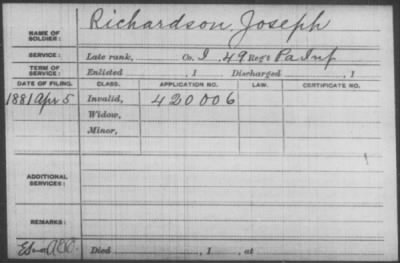 NAME OF SOLDIER: Richardson, Joseph
SERVICE: Late rank, Co. I, 49 Reg't Pa Inf
TERM OF SERVICE: Enlisted , 1 Discharged , 1
DATE OF FILING. CLASS. APPLICATION NO. LAW. CERTIFICATE NO.
1881 Apr 5 Invalid, 420006
Widow,
Minor,
ADDITIONAL SERVICES:
REMARKS:
Died , 1 , at